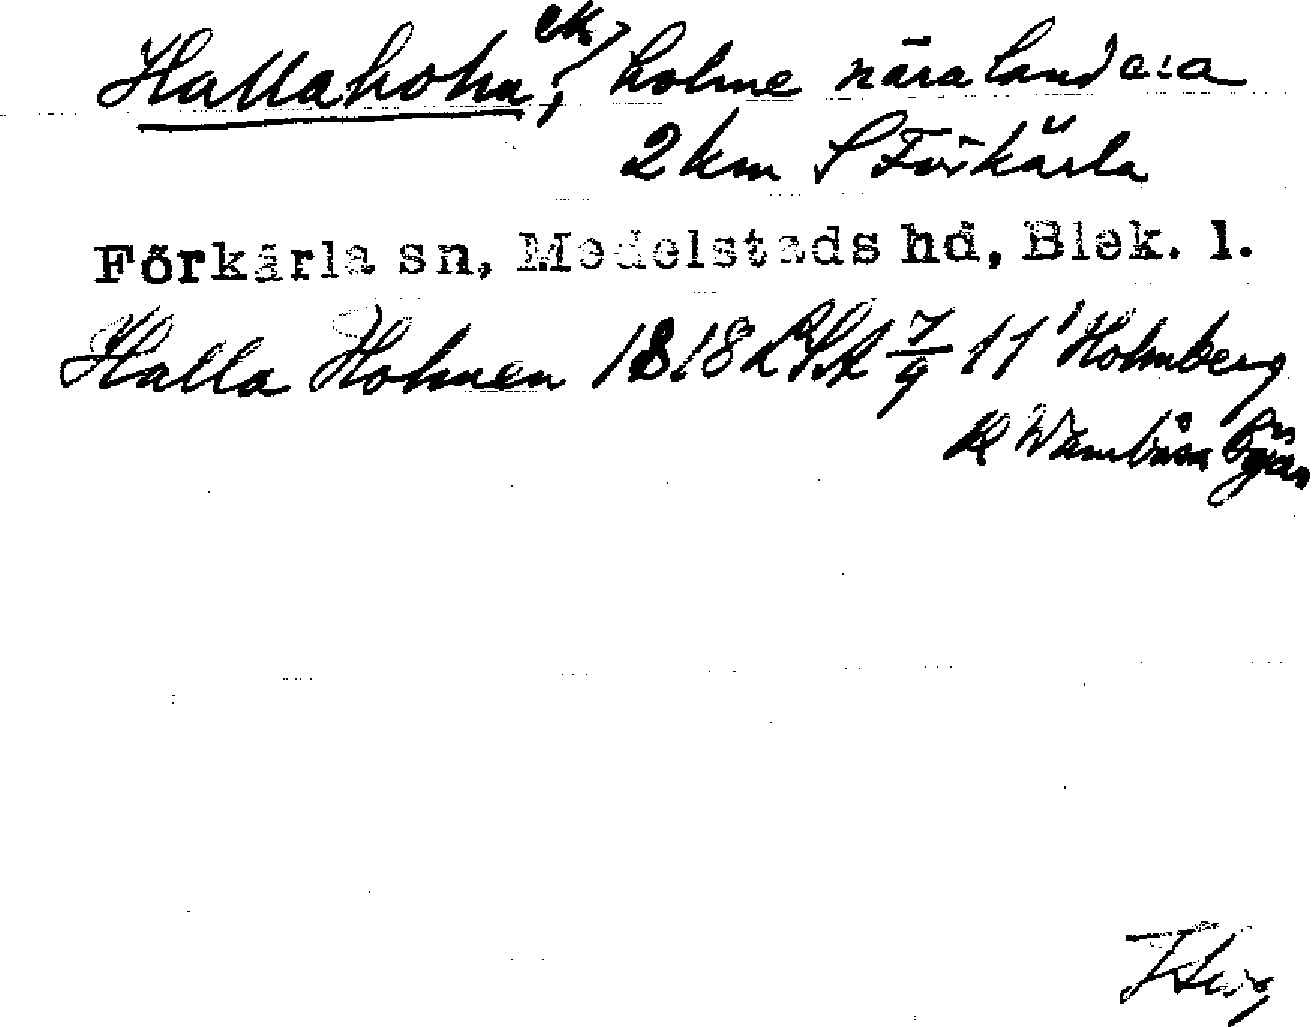 Hallaholm, ek, holme nära land c:a
2 km S Förkärla
Förkärla sn, Medelstads hd, Blek. l.
Halla Holmen 1818 LSA 7/9 11 Holmberg
R